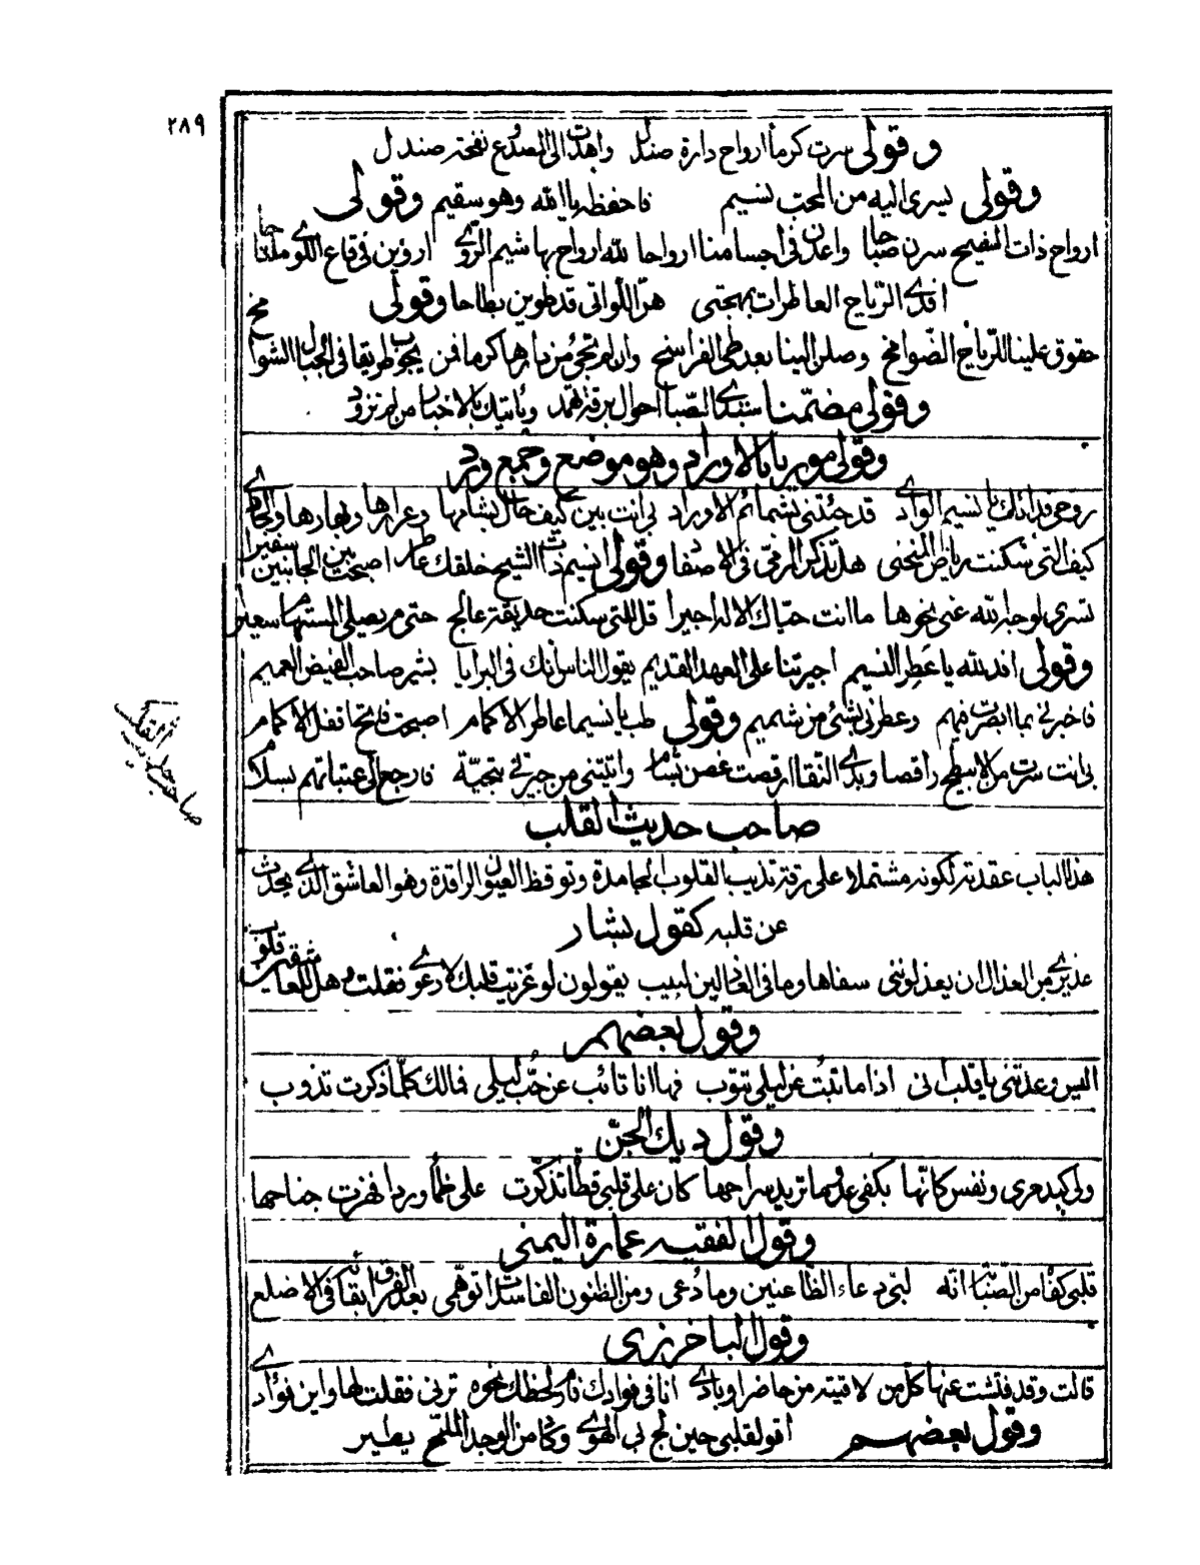 ٢٨٩
وقولي سرت كرما ارواح دارة صندل واهدت الى المصدع نفحته صندل
وقولي يسرى اليه من المحب نسيم فاحفظه يا الله وهو سقيم وقولي
ارواح ذات الشيح سرن صباحا واعدن في اجسامنا ارواحا لله ارواح بها شيم الروى اروين في قاع اللوى
افدى الرياح العاطرات بمهجتي هن اللواتي قد طوين بطاحا وقولي
حقوق علينا للرياح الضوامخ وصلن الينا بعد طى الفراسخ وان لم تجئ من بارها كرما فمن يجوب طريقا في الجبال الشوامخ
وقولي مضمنا ستبدى الصبا احوال برقة ثهمد وياتيك بالاخبار من لم تزود
وقولي موريا بالاوراد وهو موضع وجمع ورد
روحى فدائك يا نسيم الوادى قد جئتني بشمائم الاوراد بي انت بين كيف حال بشامها وعرارها وبهارها والجادى
كيف التي سكنت رياض المنحنى هل تذكر الرمي في الاصفاد وقولي انسيم ذات الشيح خلقك عاطر اصبحت بين الجانبين سفيرا
تسرى لوجه الله عنى نحوها ما انت حباك الاله اجيرا قل للتي سكنت حديقة عالج حتى م يصلى المستهام سعيرا
وقولي افد لله يا عطر النسيم اجيرتنا على العهد القديم يقول الناس انك في البرايا بشير صاحب الفيض العميم
فاخبرني بما ابصرت فيهم وعطرني بشئ من شميم وقولي طب يا نسيما عاطر الاكمام اصبحت فاتح اقفل الاكمام
بي انت سرت من الابيطح راقصا وبدى النقا ارقصت غصن بشام واتيتني من جيرتي بتحية فارجع الى عتباتهم بسلام
صاحب حديث القلب
صاحب حديث القلب
هذا الباب عقدته لكونه مشتملا على رقة تذيب القلوب الجامدة وتوقظ العيون الراقدة وهو العاشق الذى يحدث
عن قلبه كقول بشار
عذيرى من العذال ان يعذلونني سفاها وما في العاذلين لبيب يقولون لو عزيت قلبك لارعوى فقلت وهل للعاشقين قلوب
وقول بعضهم
اليس وعدتني يا قلب اني اذا ما تبت عن ليلى تتوب فها انا تائب عن حب ليلى فمالك كلما ذكرت تذوب
وقول ديك الجن
ولي كبد حرى ونفس كانها بكفى عدو ما تريد سراحها كان على قلبي قطاة تذكرت على ظمأ وردا فهزت جناحها
وقول الفقيه عمارة اليمني
قلبي كفاه من الصبابة انه لبى دعاء الظاعنين وما دعى ومن الظنون الفاسدات توهمي بعد الفراق بقائه في الاضلع
وقول الباخرزى
قالت وقد فتشت عنها كل من لاقيته من حاضر او بادى انا في فؤادك فارم لحظك نحوه ترني فقلت لها واين فؤادى
وقول بعضهم اقول لقلبي حين لج بي الهوى وكاد من الوجد الملح يطير